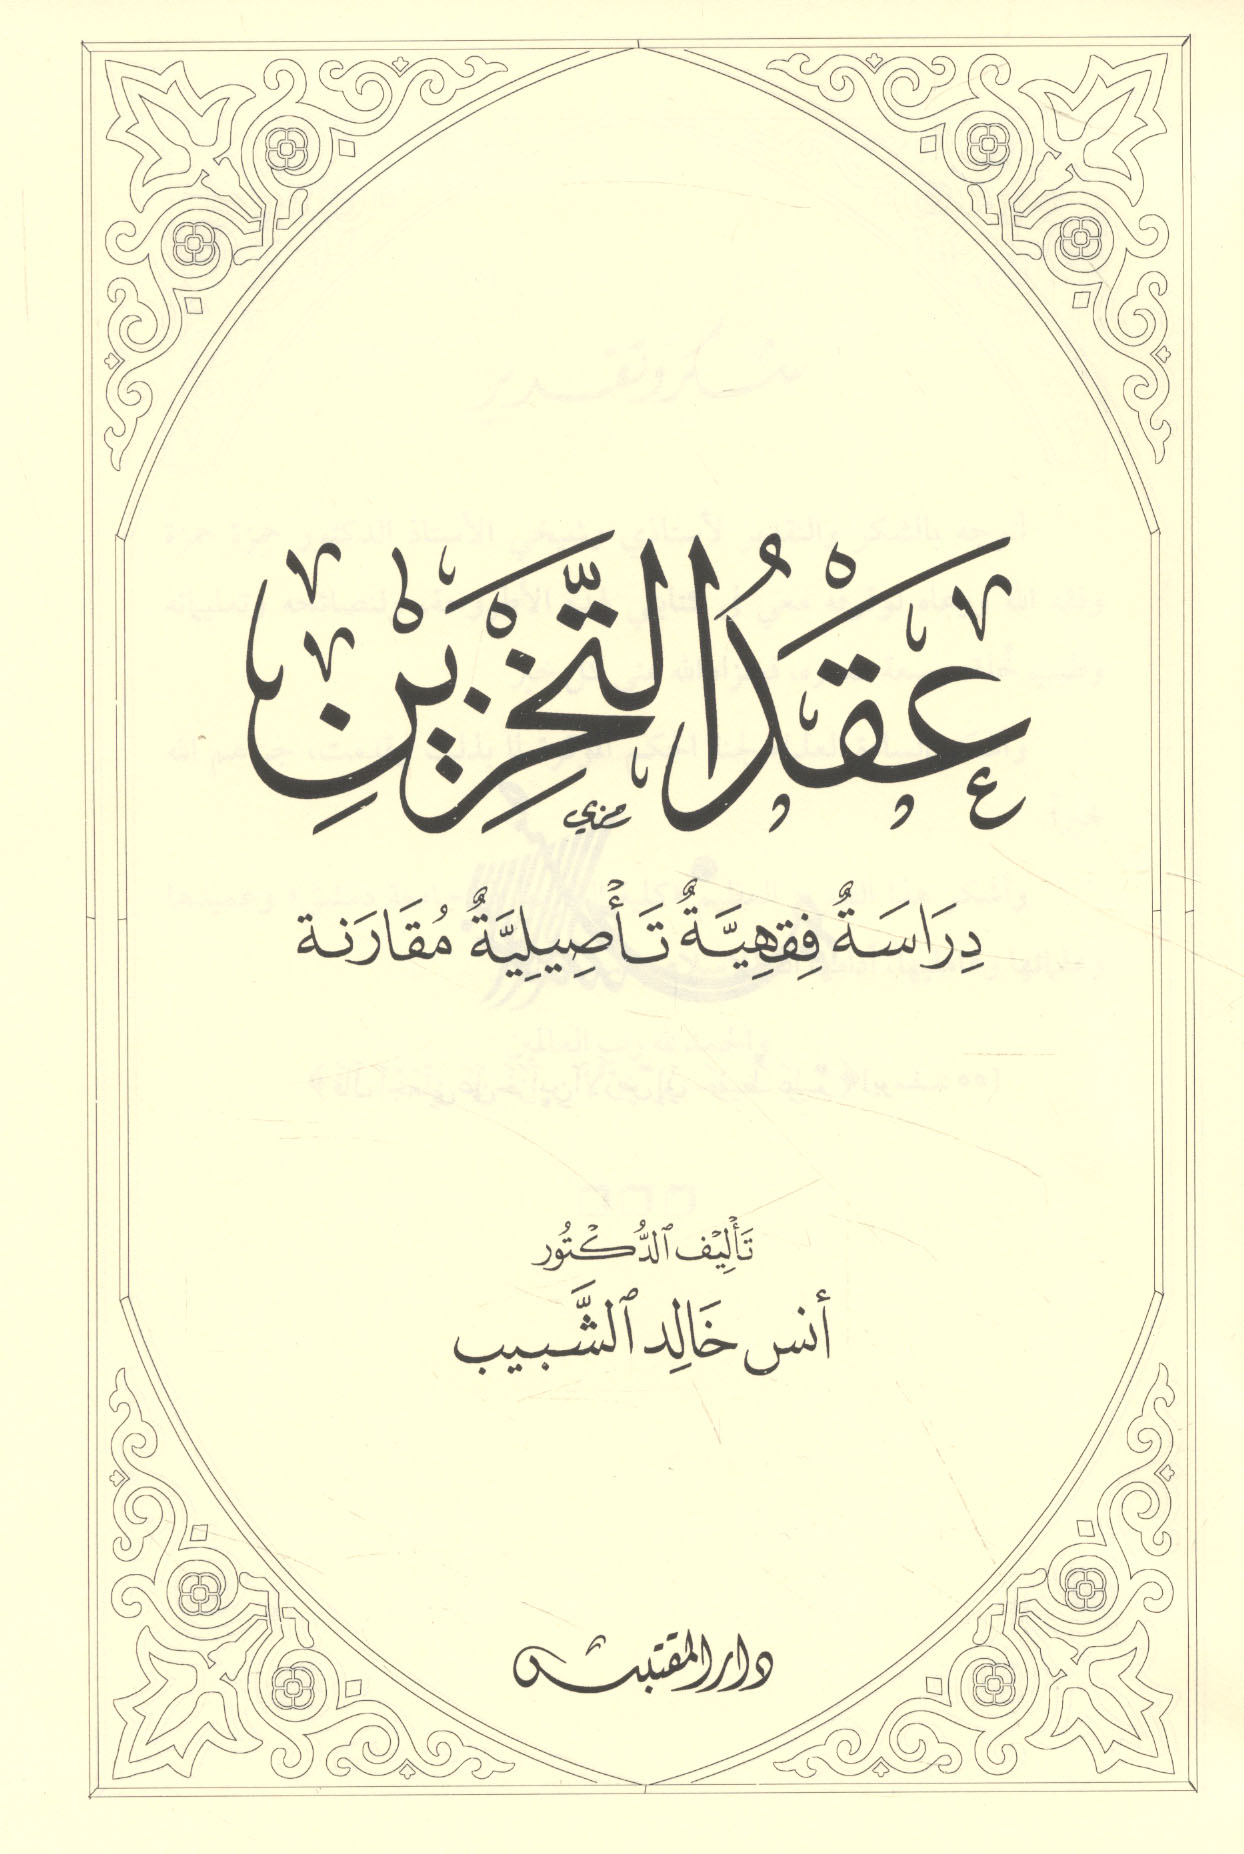 عَقْدُ التَّخْزِينِ
دِرَاسَةٌ فِقْهِيَّةٌ تَأْصِيلِيَّةٌ مُقَارَنة
تَأْلِيْف ٱلدُّكْتُور
أنس خَالِد ٱلشَّبيب
دار المقتبس